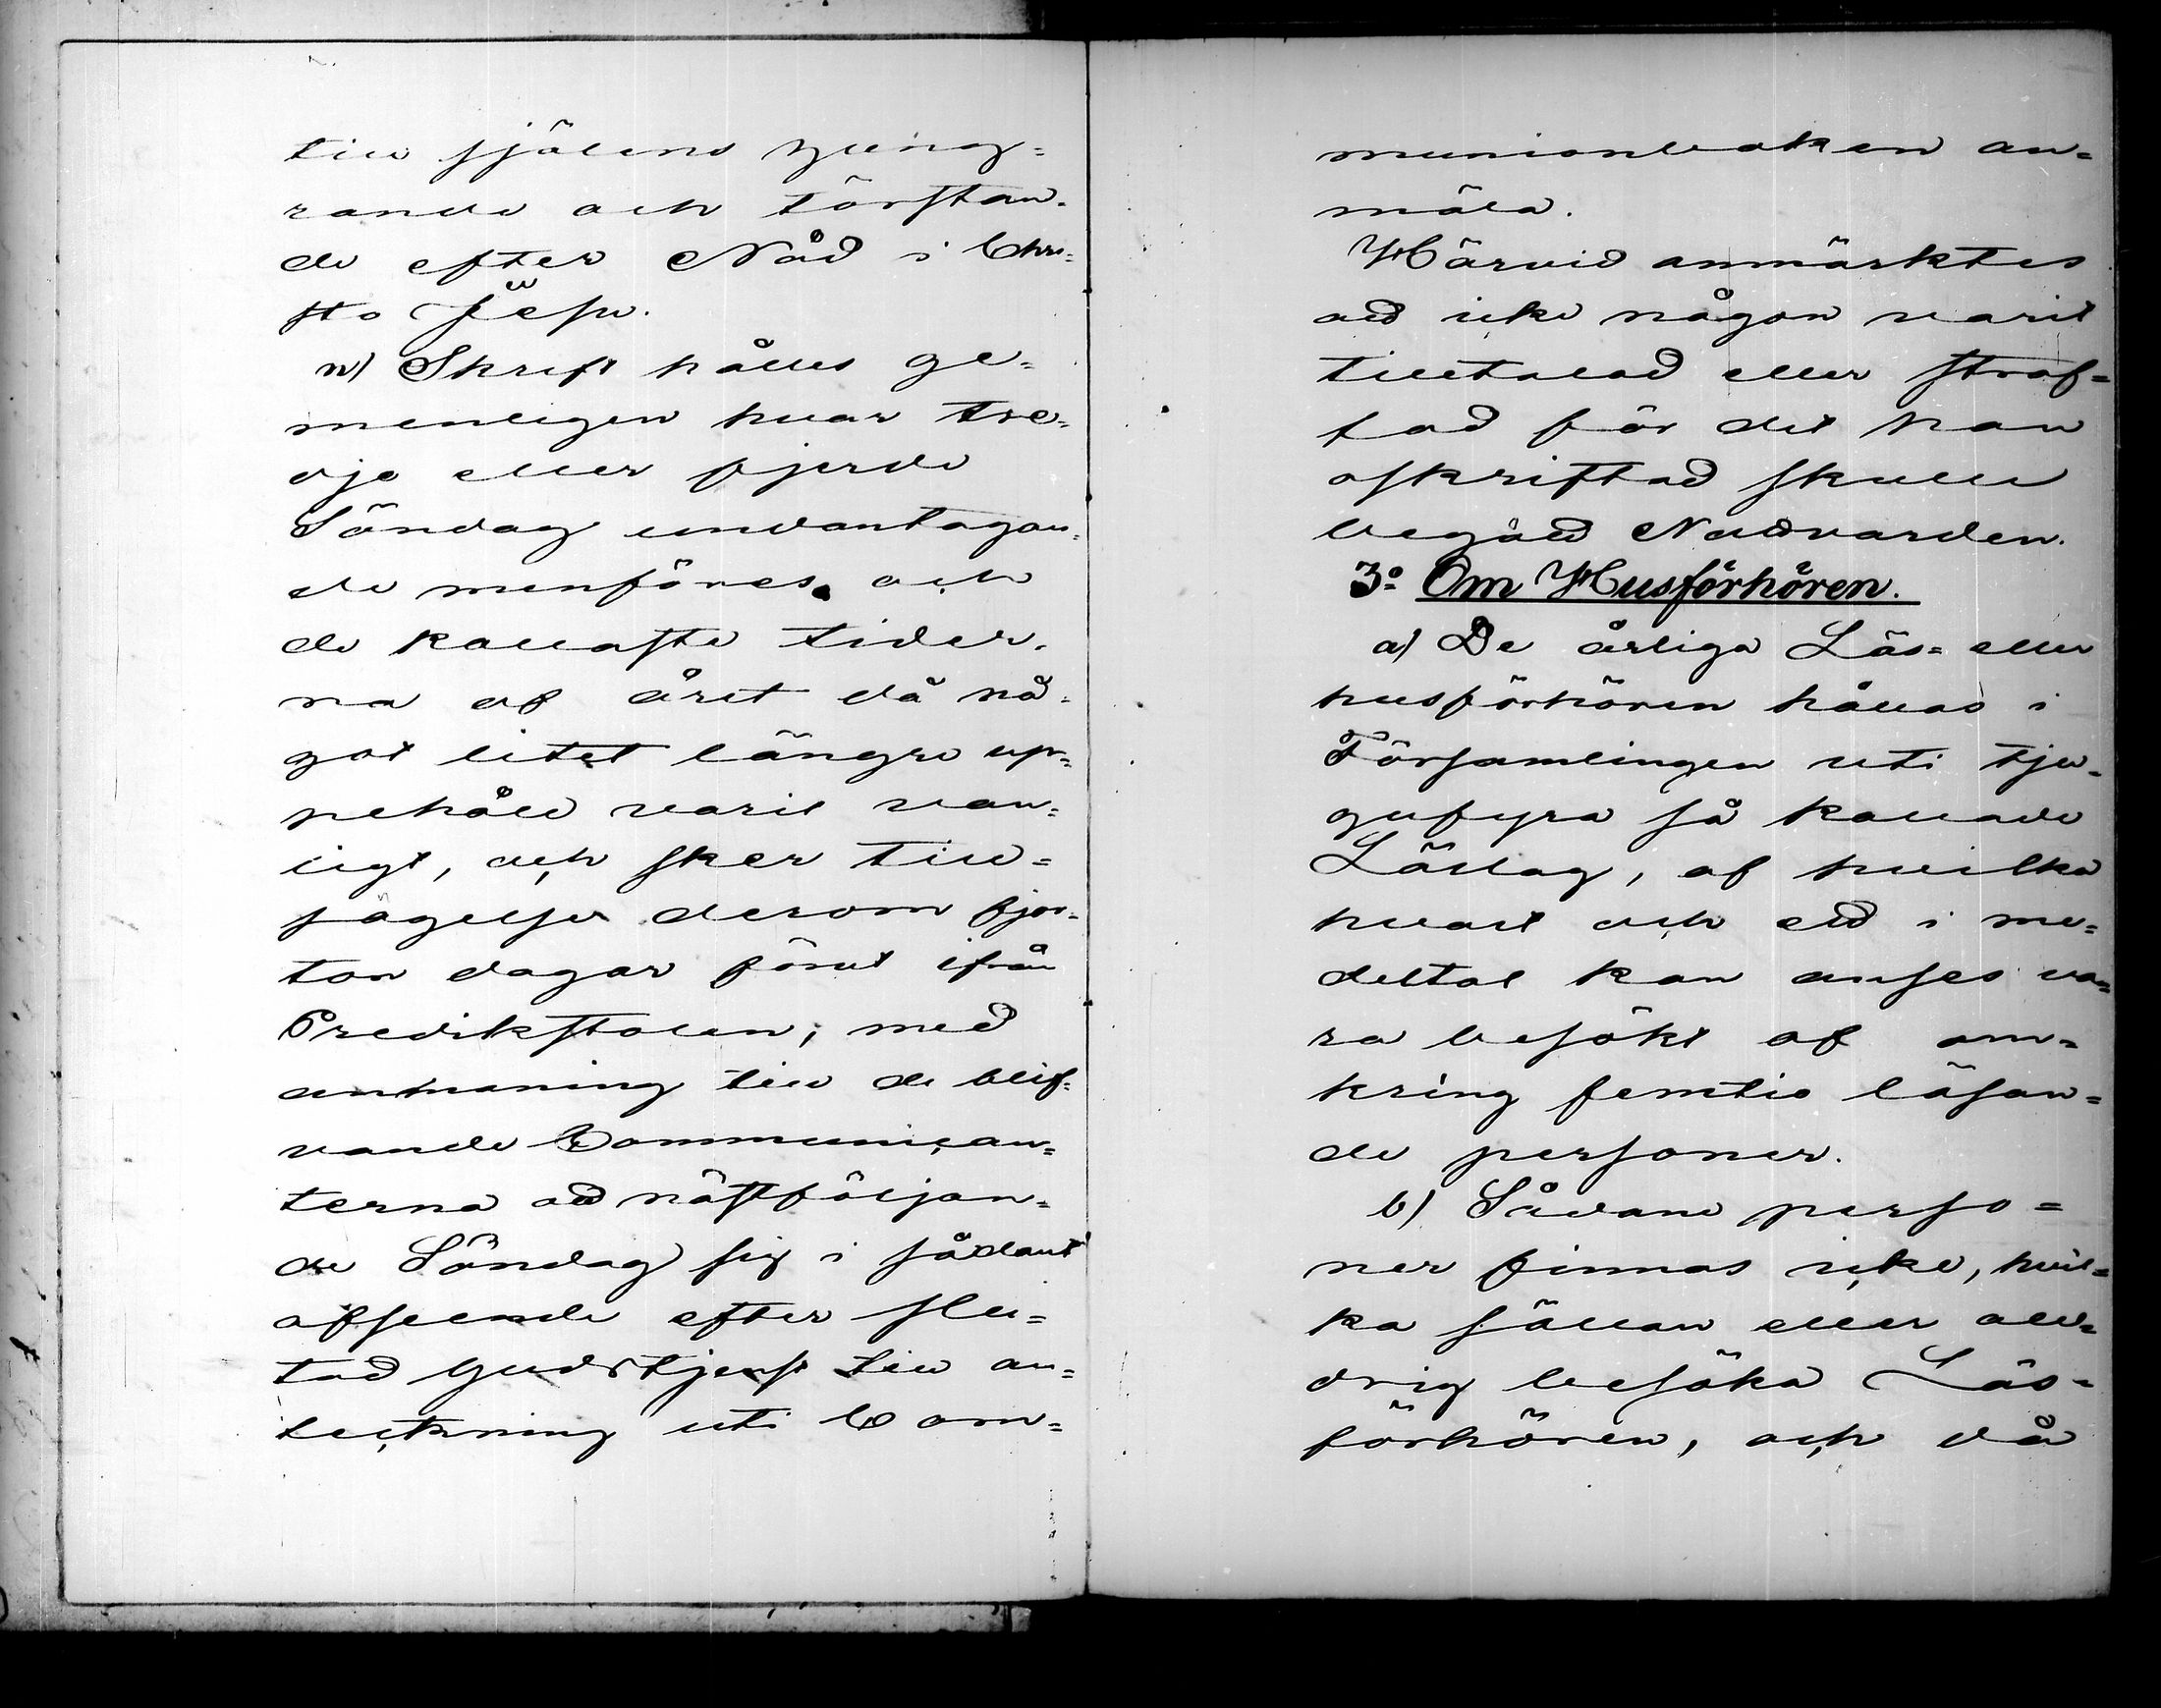 till själens hung=
rande och törstan=
de efter Nåd i Chri=
sto Jesu.
n) Skrift hålles ge=
menligen hvar tre=
dje eller fjerde
Söndag undantagan=
de menföres och
de kallaste tider=
na af året då nå=
got litet längre up=
pehåll varit van=
ligt, och sker till=
sägelse derom fjor=
ton dagar förut ifrån
Predikstolen, med
anmaning till de blif=
vande Communican=
terna att nästföljan=
de Söndag sig i sådant
afseende efter slu=
tad Gudstjenst till an=
teckning uti Com=
munionboken an=
mäla.
Härvid anmärktes
att icke någon varit
tilltalad eller straf=
fad för det han
oskriftad skulle
begått Nattvarden.
3:o Om Husförhören.
a) De årliga Läs= eller
husförhören hållas i
Församlingen uti tju=
gufyra så kallade
Läslag, af hvilka
hvart och ett i me=
deltal kan anses va=
ra besökt af om=
kring femtio läsan=
de personer.
b) Sådane perso=
ner finnas icke, hvil=
ka sällan eller ald=
drig besöka Läs=
förhören, och då